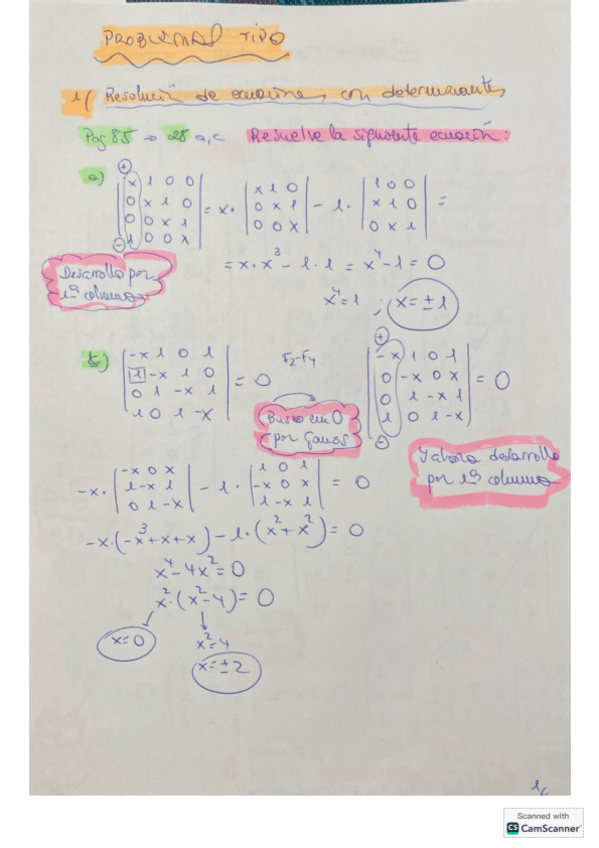 PROBLEMAS TIPO
1/ Resolución de ecuaciones con determinantes
Pag 85 → 28 a, c Resuelve la siguiente ecuación:
a) ⊕ | x 1 0 0 | = x· | x 1 0 | − 1· | 1 0 0 | =
| 0 x 1 0 | | 0 x 1 | | x 1 0 |
| 0 0 x 1 | | 0 0 x | | 0 x 1 |
⊖ | 1 0 0 x |
Desarrollo por
1ª columna
= x·x³ − 1·1 = x⁴−1 = 0
x⁴=1 ; x=±1
⊕
| -x 1 0 1 | = 0 F2-F4 | -x 1 0 1 | = 0
| 1 -x 1 0 | | 0 -x 0 x |
| 0 1 -x 1 | | 0 1 -x 1 |
| 1 0 1 -x | | 1 0 1 -x |
⊖
Busco un 0
por Gauss
Y ahora desarrollo
por 1ª columna
-x· | -x 0 x | − 1· | 1 0 1 | = 0
| 1 -x 1 | | -x 0 x |
| 0 1 -x | | 1 -x 1 |
-x·(-x³+x+x)−1·(x²+x²)=0
x⁴−4x²=0
x²·(x²−4)=0
x=0 x²=4
x=±2
1/
Scanned with
CS CamScanner